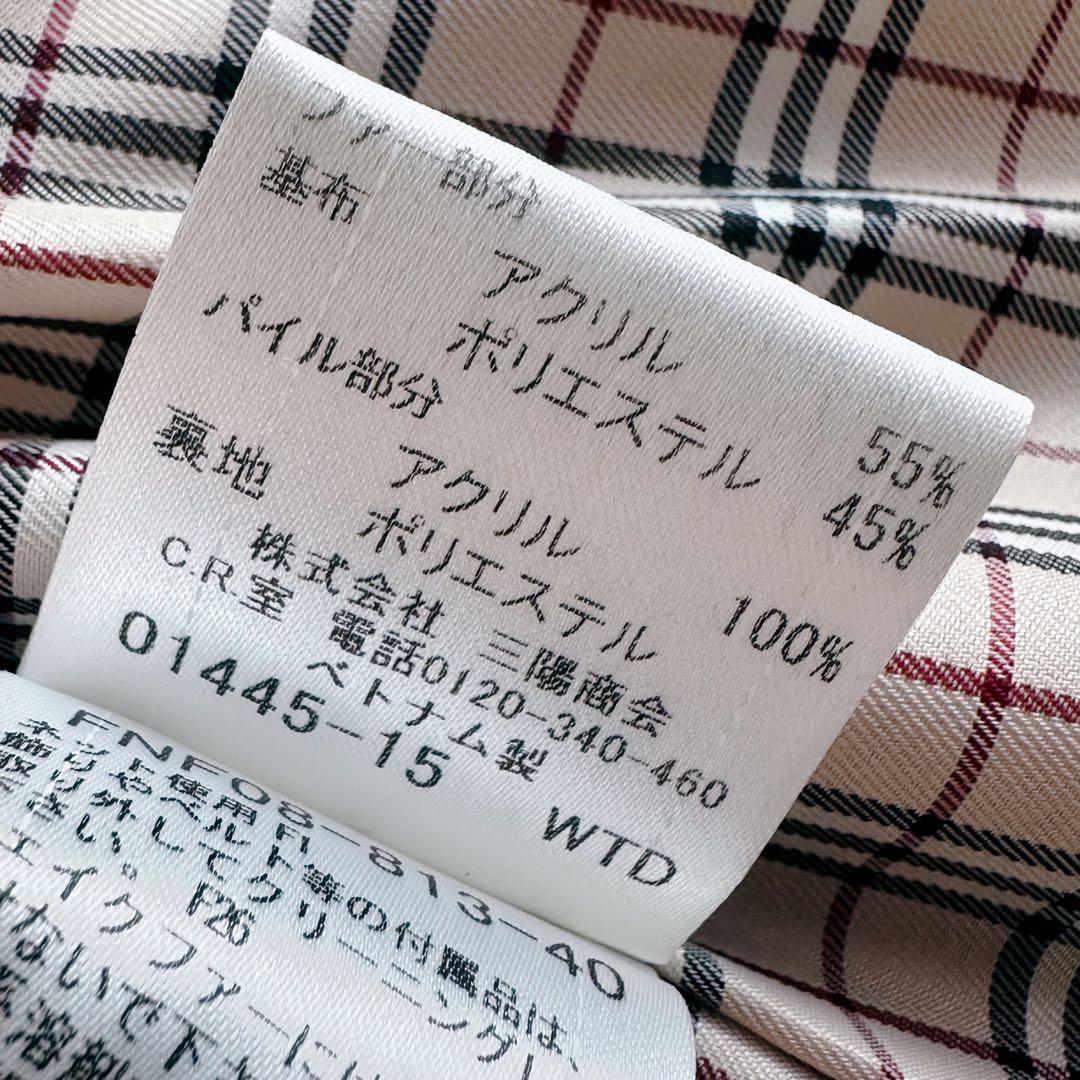 ファー部分
基布
アクリル 55%
ポリエステル 45%
パイル部分
アクリル 100%
裏地 ポリエステル
株式会社 三陽商会
C.R.室 電話0120-340-460
ベトナム製
01445-15 WTD
FNF08-813-40
ット使用
やベルト等の付属品は、
取り外してクリーニングし
さい。 F26
ェイクファーには
ないで下
溶剤